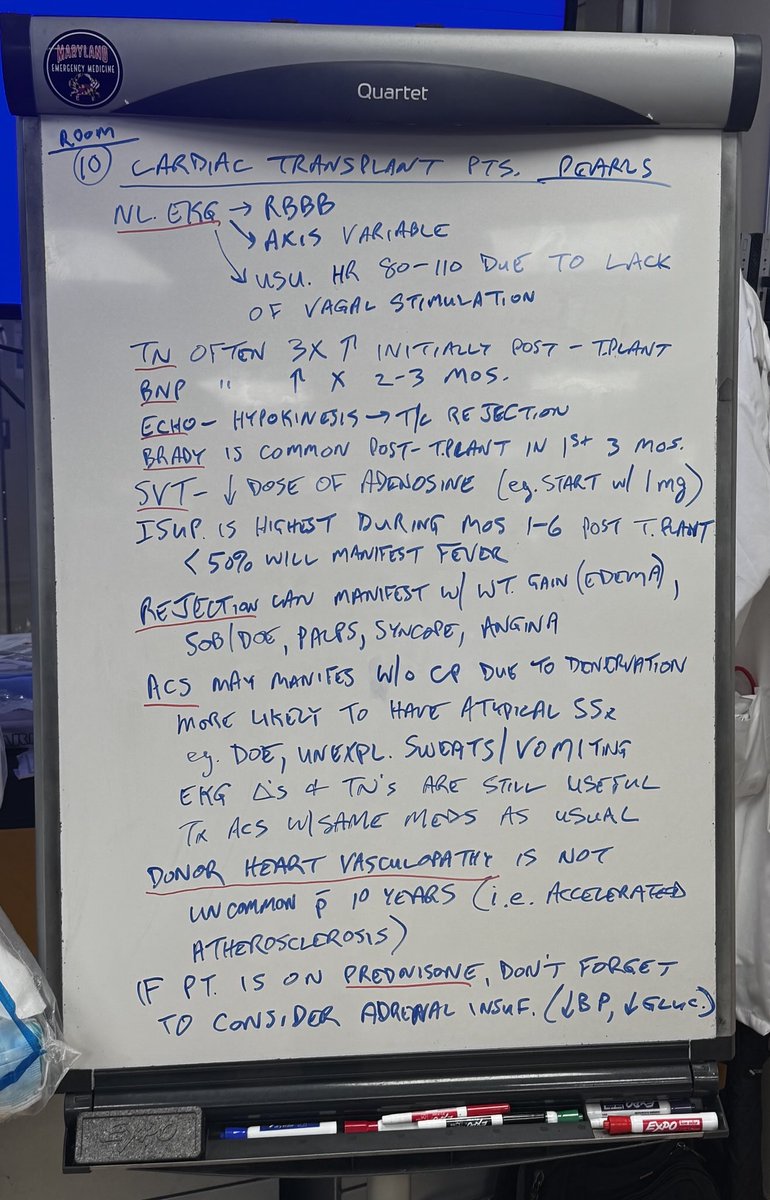 MARYLAND
EMERGENCY MEDICINE
Quartet
ROOM
10 CARDIAC TRANSPLANT PTS. PEARLS
NL. EKG → RBBB
→ AXIS VARIABLE
→ USU. HR 80-110 DUE TO LACK
OF VAGAL STIMULATION
TN OFTEN 3X ↑ INITIALLY POST-T.PLANT
BNP " ↑ X 2-3 MOS.
ECHO- HYPOKINESIS → T/C REJECTION
BRADY IS COMMON POST-T.PLANT IN 1st 3 MOS.
SVT- ↓ DOSE OF ADENOSINE (eg. START w/ 1mg)
ISUP. IS HIGHEST DURING MOS 1-6 POST T.PLANT
< 50% WILL MANIFEST FEVER
REJECTION CAN MANIFEST W/ WT. GAIN (EDEMA),
SOB/DOE, PALPS, SYNCOPE, ANGINA
ACS MAY MANIFES W/O CP DUE TO DENERVATION
MORE LIKELY TO HAVE ATYPICAL SSx
eg. DOE, UNEXPL. SWEATS/VOMITING
EKG Δ's & TN's ARE STILL USEFUL
Tx ACS W/SAME MEDS AS USUAL
DONOR HEART VASCULOPATHY IS NOT
UNCOMMON p̄ 10 YEARS (i.e. ACCELERATED
ATHEROSCLEROSIS)
IF PT. IS ON PREDNISONE, DON'T FORGET
TO CONSIDER ADRENAL INSUF. (↓BP, ↓GLUC.)
EXPO
EXPO